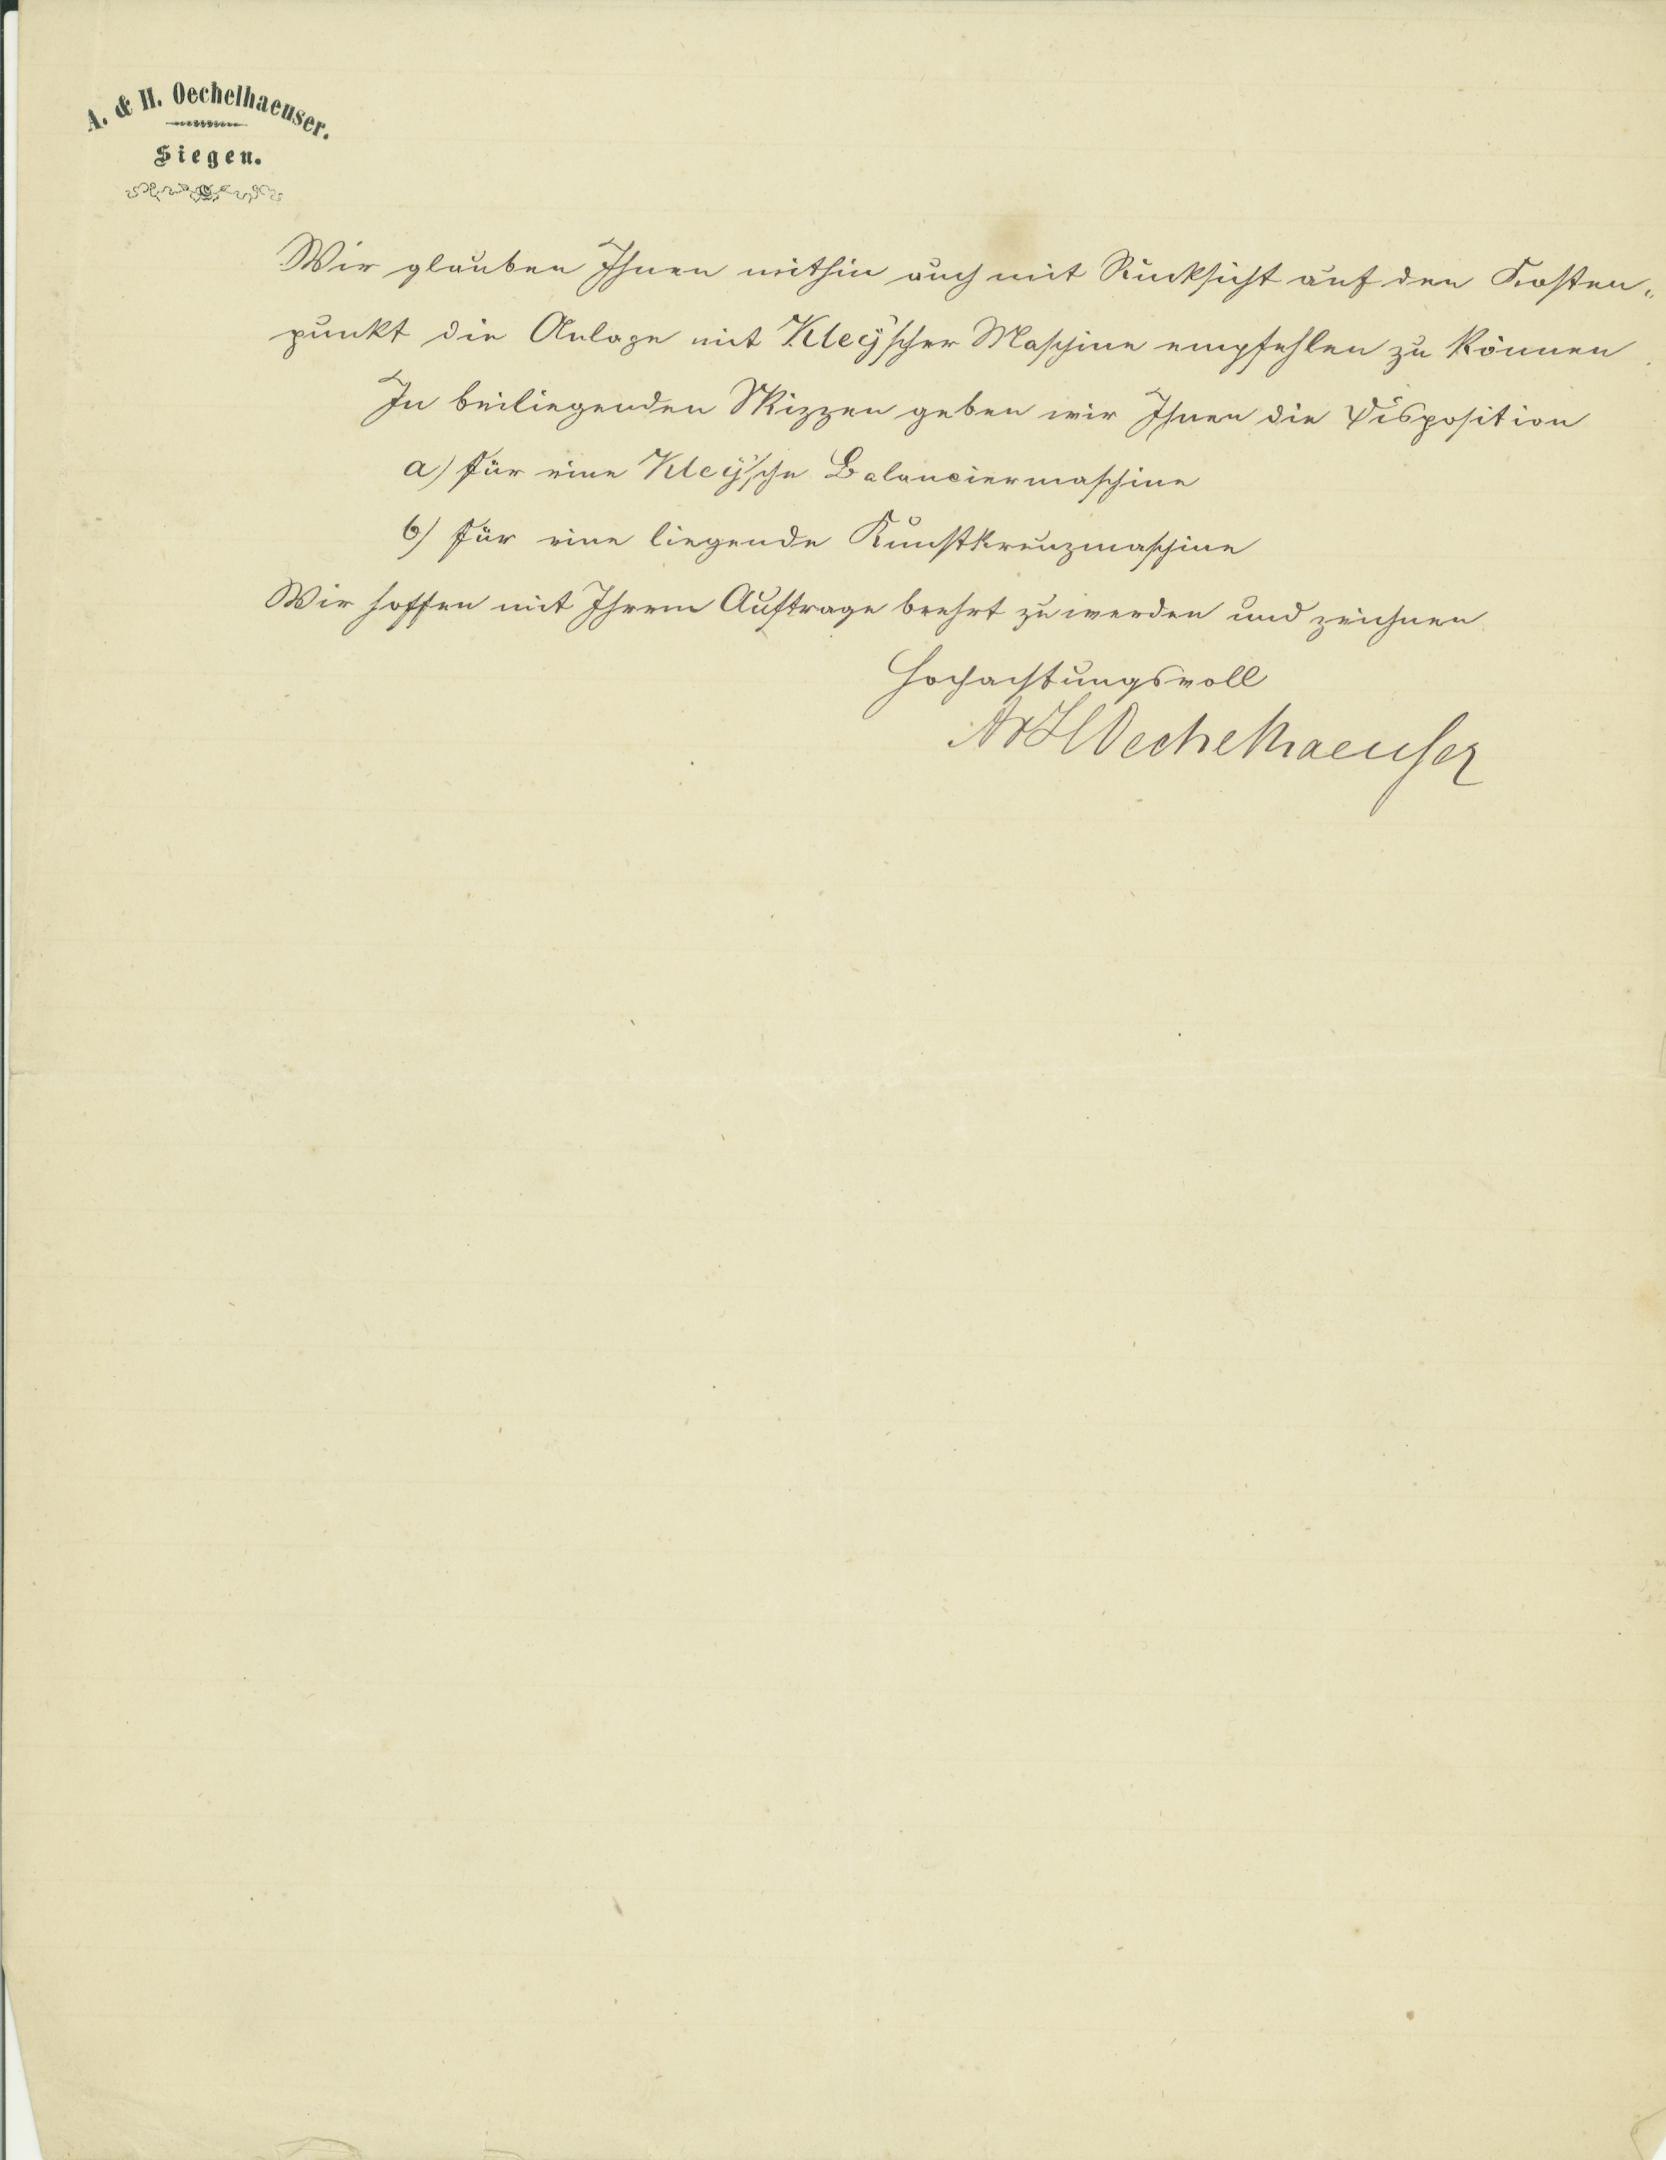 A. & H. Oechelhaeuser.
Siegen.
Wir glauben Ihnen mithin auch mit Rücksicht auf den Kosten-
punkt die Anlage mit Kley'scher Maschine empfehlen zu können
In beiliegenden Skizzen geben wir Ihnen die Disposition
a) für eine Kley'sche Balanciermaschine
b) für eine liegende Kunstkreuzmaschine
Wir hoffen mit Ihrem Auftrage beehrt zu werden und zeichnen
Hochachtungsvoll
A & H Oechelhaeuser